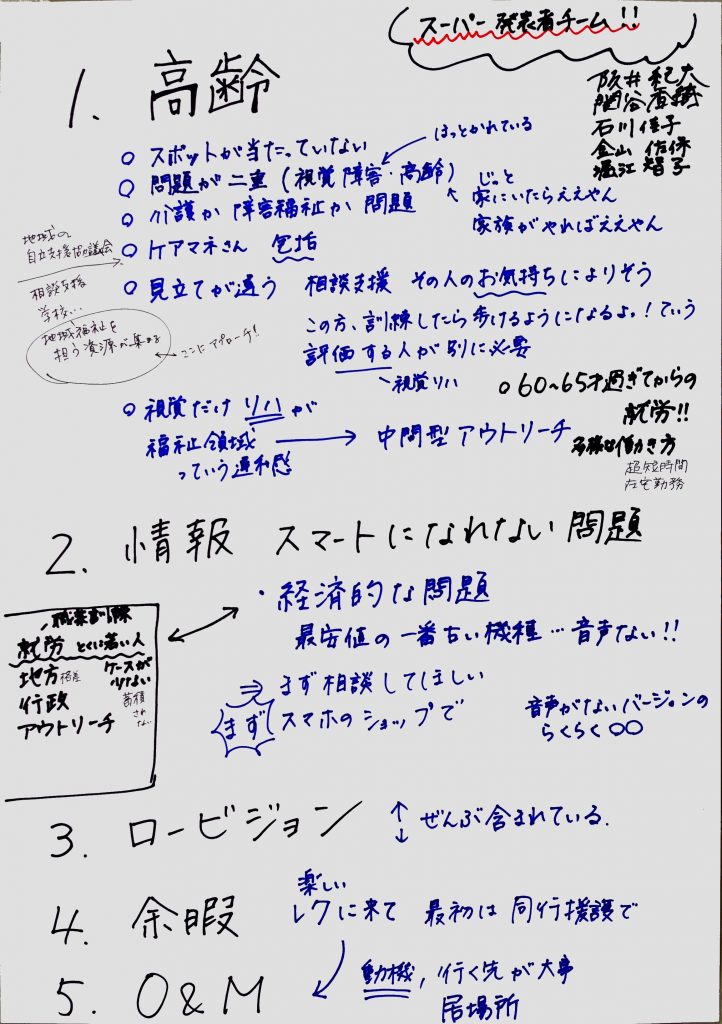 スーパー発表者チーム!!
阪井紀夫
関谷香織
石川佳子
金山佐保
堀江智子
1. 高齢
○ スポットが当たっていない
○ 問題が二重(視覚障害・高齢)
ほっとかれている
じっと
家にいたらええやん
家族がやればええやん
○ 介護か障害福祉か 問題
地域の
自立支援協議会
○ ケアマネさん 包括
○ 見立てが違う 相談支援 その人のお気持ちによりそう
相談支援
学校…
地域福祉を
担う資源が集まる
ここにアプローチ!
この方、訓練したら歩けるようになるよ。!ていう
評価する人が別に必要
視覚リハ
○ 60~65才過ぎてからの
就労!!
多様な働き方
超短時間
在宅勤務
○ 視覚だけ リハが
福祉領域
っていう違和感
→ 中間型アウトリーチ
2. 情報 スマートになれない問題
・経済的な問題
最安値の一番古い機種…音声ない!!
⇒ まず相談してほしい
まず
スマホのショップで
音声がないバージョンの
らくらく○○
職業訓練
就労 とくに若い人
地方格差
ケースが
少ない
蓄積
され
ない
行政
アウトリーチ
3. ロービジョン ↑↓ ぜんぶ含まれている.
4. 余暇
楽しい
レクに来て 最初は 同行援護で
5. O&M
動機, 行く先が大事
居場所